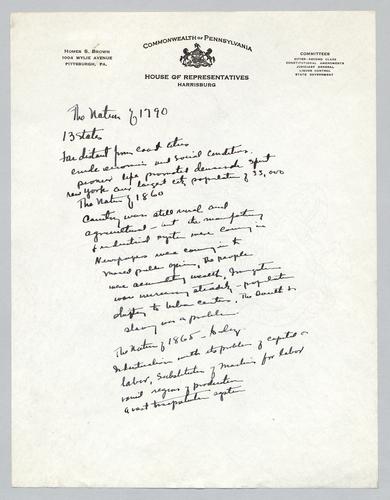 Homer S. Brown
1004 Wylie Avenue
Pittsburgh, Pa.
Commonwealth of Pennsylvania
House of Representatives
Harrisburg
Committees
Cities-Second Class
Constitutional Amendments
Judiciary General
Liquor Control
State Government
The Nation of 1790
13 States
Far distant from coast cities
crude economic and social conditions.
pioneer life promoted democratic spirit
New York our largest city population of 33,000
The Nation of 1860
Country was still rural and
agricultural - but the manufacturing
& industrial system were coming in
Newspapers were coming in to
mould public opinion, the people
were accumulating wealth, Immigration
was increasing steadily - population
shifting to urban centers, The South &
slavery was a problem.
The Nation of 1865 - to-day
Industrialism with its problem of capital &
labor, Substitution of machine for labor
vast regions of production
a vast transportation system